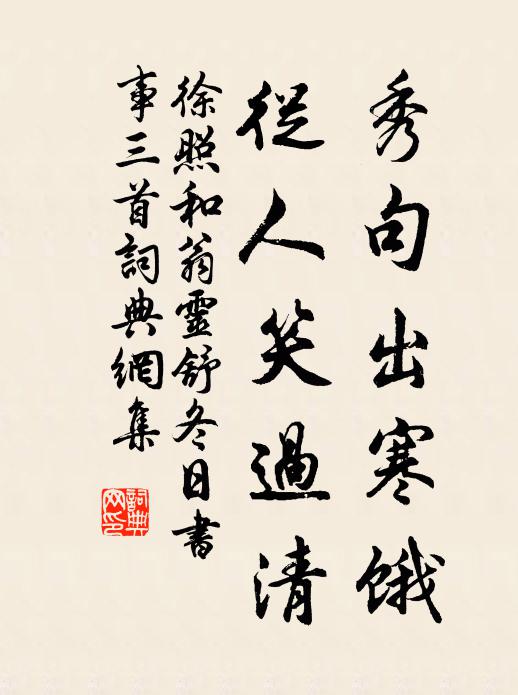 秀句出寒饿
從人笑過清
徐照和翁靈舒冬日書
事三首詞典網集
詞典網印